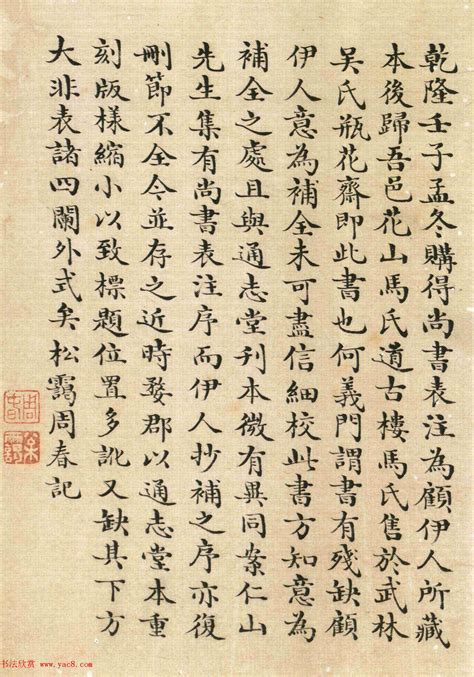 乾隆壬子孟冬購得尚書表注為顧伊人所藏
本後歸吾邑花山馬氏道古樓馬氏售於武林
吳氏瓶花齋即此書也何義門謂書有殘缺顧
伊人意為補全未可盡信細校此書方知意為
補全之處且與通志堂刊本微有異同案仁山
先生集有尚書表注序而伊人抄補之序亦復
刪節不全今並存之近時婺郡以通志堂本重
刻版樣縮小以致標題位置多訛又缺其下方
大非表諸四闌外式矣松靄周春記
周春
松靄
书法欣赏 www.yac8.com